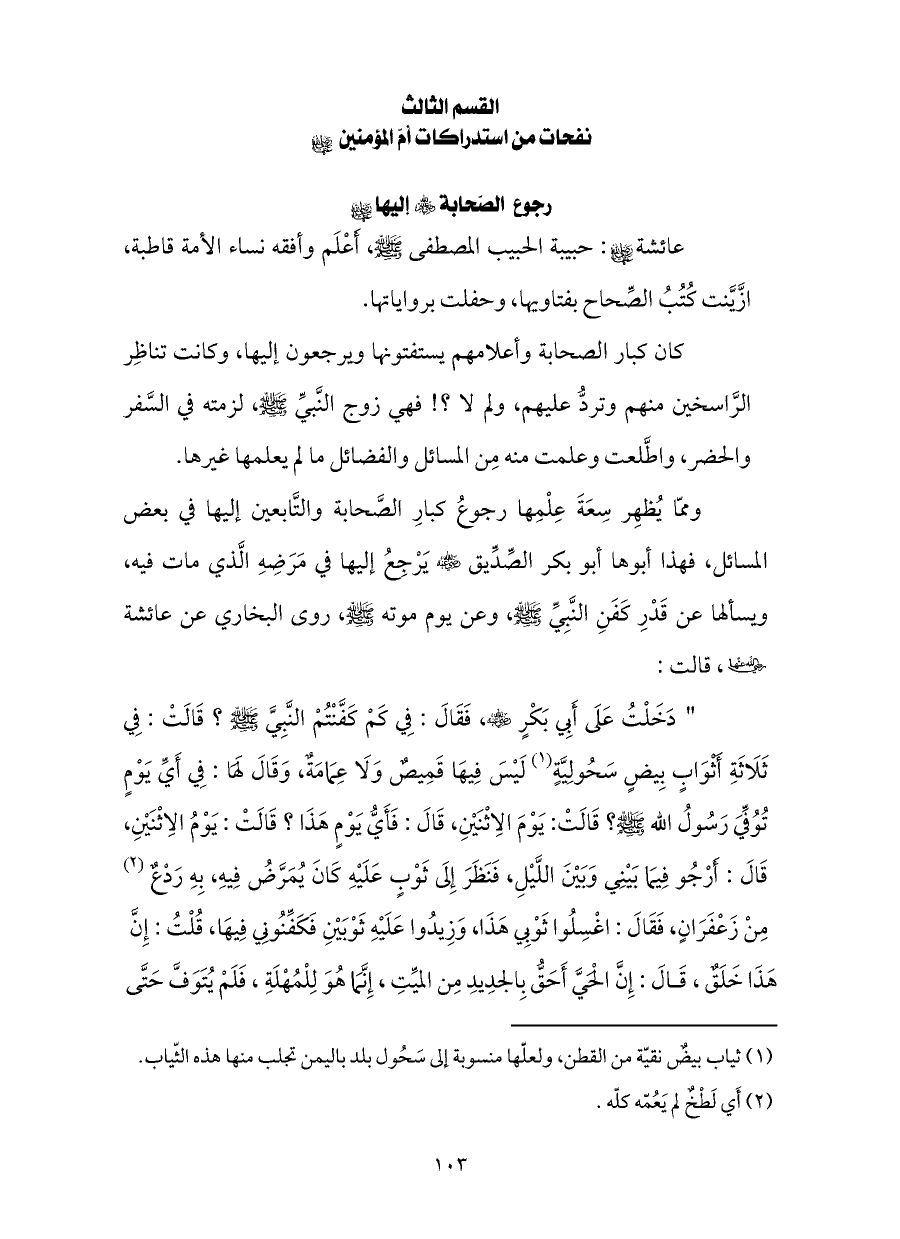 القسم الثالث
نفحات من استدراكات أمّ المؤمنين رضي الله عنها
رجوع الصّحابة رضي الله عنهم إليها رضي الله عنها
عائشة رضي الله عنها : حبيبة الحبيب المصطفى ﷺ، أَعْلَم وأفقه نساء الأمة قاطبة،
ازَّيَّنت كُتُبُ الصِّحاح بفتاويها، وحفلت برواياتها.
كان كبار الصحابة وأعلامهم يستفتونها ويرجعون إليها، وكانت تناظِر
الرَّاسخين منهم وتردُّ عليهم، ولم لا ؟! فهي زوج النَّبيِّ ﷺ، لزمته في السَّفر
والحضر، واطَّلعت وعلمت منه مِن المسائل والفضائل ما لم يعلمها غيرها.
وممّا يُظهِر سِعَةَ عِلْمِها رجوعُ كبارِ الصَّحابة والتَّابعين إليها في بعض
المسائل، فهذا أبوها أبو بكر الصِّدِّيق رضي الله عنه يَرْجِعُ إليها في مَرَضِهِ الَّذي مات فيه،
ويسألها عن قَدْرِ كَفَنِ النَّبيِّ ﷺ، وعن يوم موته ﷺ، روى البخاري عن عائشة
رضي الله عنها ، قالت :
" دَخَلْتُ عَلَى أَبِي بَكْرٍ رضي الله عنه، فَقَالَ : فِي كَمْ كَفَّنْتُمْ النَّبِيَّ ﷺ ؟ قَالَتْ : فِي
ثَلَاثَةِ أَثْوَابٍ بِيضٍ سَحُولِيَّةٍ(١) لَيْسَ فِيهَا قَمِيصٌ وَلَا عِمَامَةٌ، وَقَالَ لَهَا : فِي أَيِّ يَوْمٍ
تُوُفِّيَ رَسُولُ الله ﷺ؟ قَالَتْ: يَوْمَ الاِثْنَيْنِ، قَالَ : فَأَيُّ يَوْمٍ هَذَا ؟ قَالَتْ : يَوْمُ الِاثْنَيْنِ،
قَالَ : أَرْجُو فِيمَا بَيْنِي وَبَيْنَ اللَّيْلِ، فَنَظَرَ إِلَى ثَوْبٍ عَلَيْهِ كَانَ يُمَرَّضُ فِيهِ، بِهِ رَدْعٌ (٢)
مِنْ زَعْفَرَانٍ، فَقَالَ : اغْسِلُوا ثَوْبِي هَذَا، وَزِيدُوا عَلَيْهِ ثَوْبَيْنِ فَكَفِّنُونِي فِيهَا، قُلْتُ : إِنَّ
هَذَا خَلَقٌ ، قَـالَ : إِنَّ الْحَيَّ أَحَقُّ بِالجدِيدِ مِن الميِّتِ ، إِنَّمَا هُوَ لِلْمُهْلَةِ ، فَلَمْ يُتَوَفَّ حَتَّى
(١) ثياب بيضٌ نقيّة من القطن، ولعلّها منسوبة إلى سَحُول بلد باليمن تجلب منها هذه الثّياب.
(٢) أَي لَطْخٌ لم يَعُمّه كلّه .
١٠٣